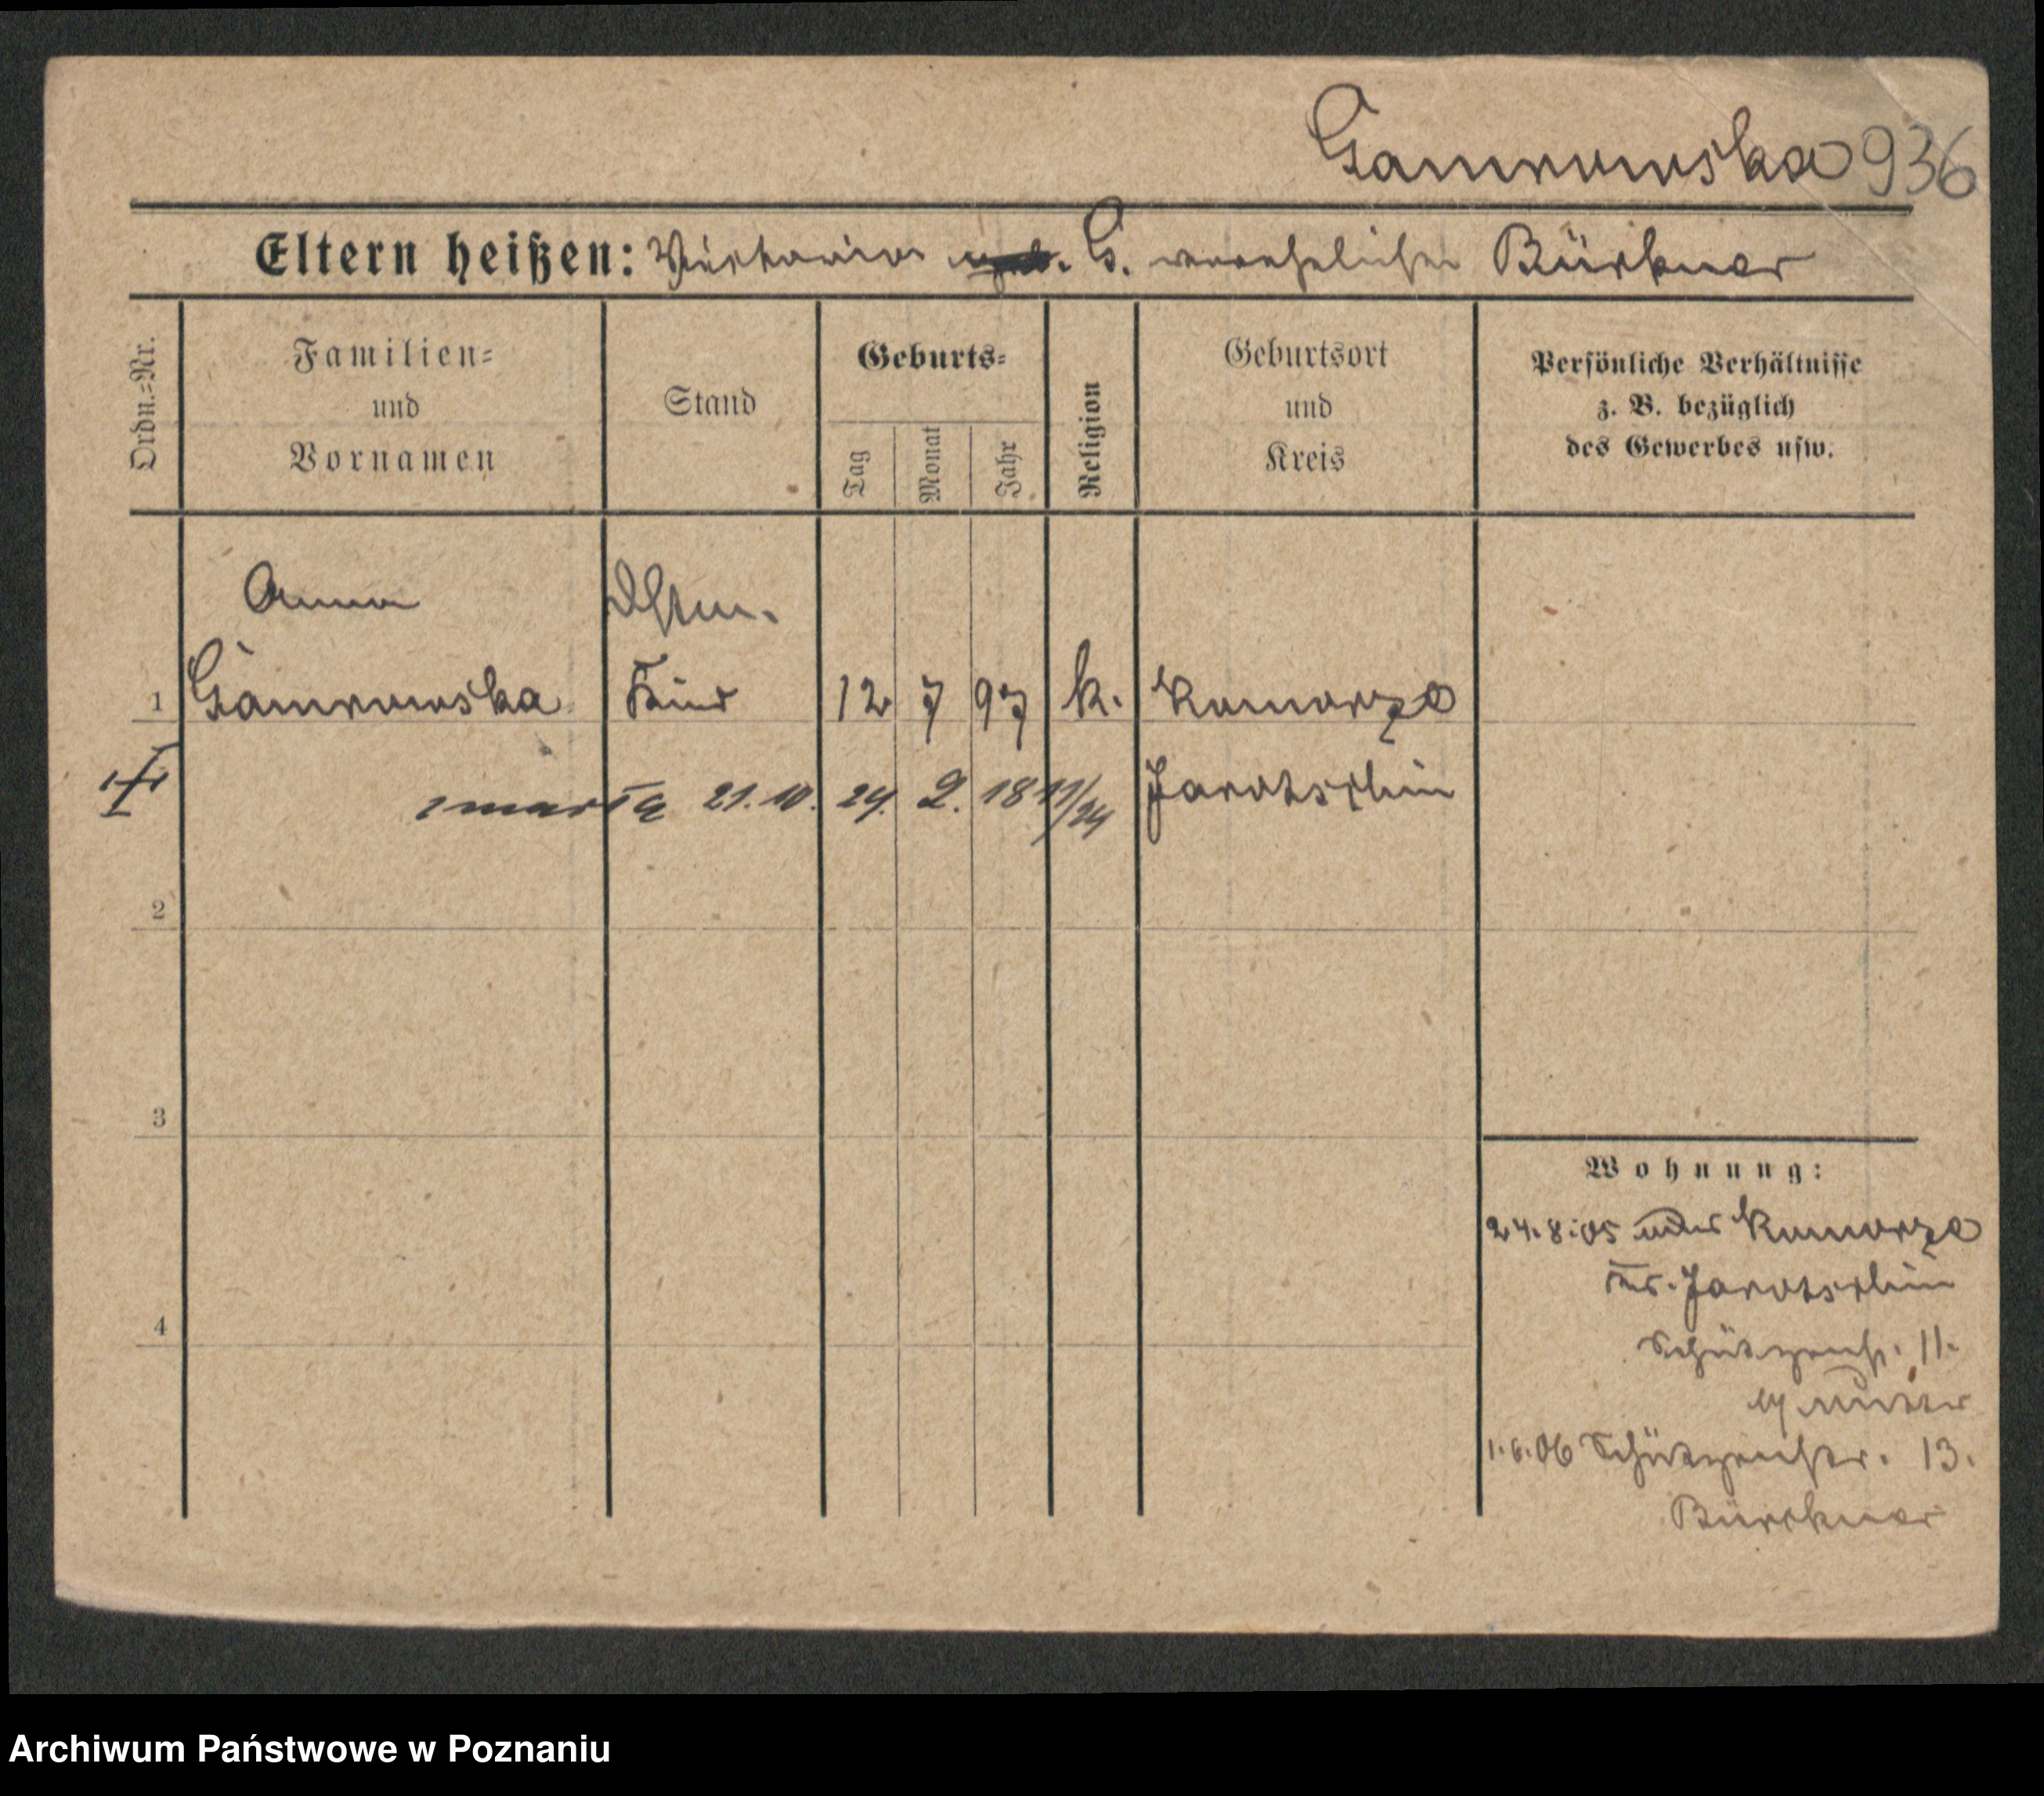 Gamrowska 936
Eltern heißen: Victoria geb. G. verehelichte Bürkner
Ordn.=Nr.
Familien=
und
Vornamen
Stand
Geburts=
Tag
Monat
Jahr
Religion
Geburtsort
und
Kreis
Persönliche Verhältnisse
z. B. bezüglich
des Gewerbes usw.
Anna
1 Gamrowska Kind 12 7 97 k. Komorze
zmarła 21.10. 24. 2. 18 Jarotschin
2
3
4
Wohnung:
24.8.05 aus Komorze
Krs. Jarotschin
Schützenstr. 11.
b/ Mutter
1.6.06 Schützenstr. 13.
Bürckner
Archiwum Państwowe w Poznaniu